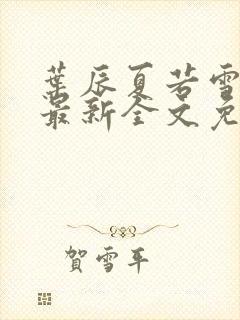 葉辰夏若雪
最新全文免
賀雪平